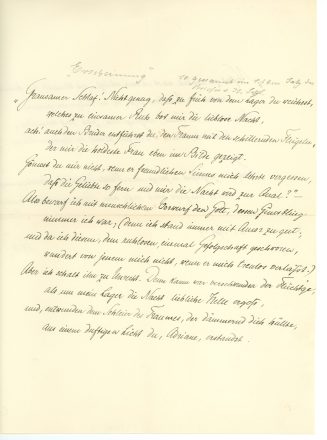 "Erscheinung"
"Grausamer Schlaf! Nicht genug, daß zu früh von dem Lager du weichest,
welches zu einsamer Ruh bot mir die liebere Nacht,
ach! auch den Bruder entführest du, den Traum mit den schillernden Flügeln,
der mir die holdeste Frau eben im Bilde gezeigt.
Gönnst du mir nicht, wenn er freundlichen Sinnes mich lehrte vergessen,
daß die Geliebte so fern und mir die Nacht wird zur Qual?" –
Also bewarf ich mit menschlichem Vorwurf den Gott, dessen Günstling
nimmer ich war; (denn ich stand immer mit Amor zu gut,
und da ich diesem, dem einmal Gefolgschaft geschworen,
wundert von jenem mich nicht, wenn er mich treulos verläßt.)
Aber ich schalt ihn zu Unrecht. Denn kaum war verschwunden der Flüchtge,
als um mein Lager die Nacht liebliche Helle ergoß,
und, entwunden dem Schleier des Traumes, der dämmernd dich hüllte,
aus einem duftigen Licht du, Ariane, entstandst.